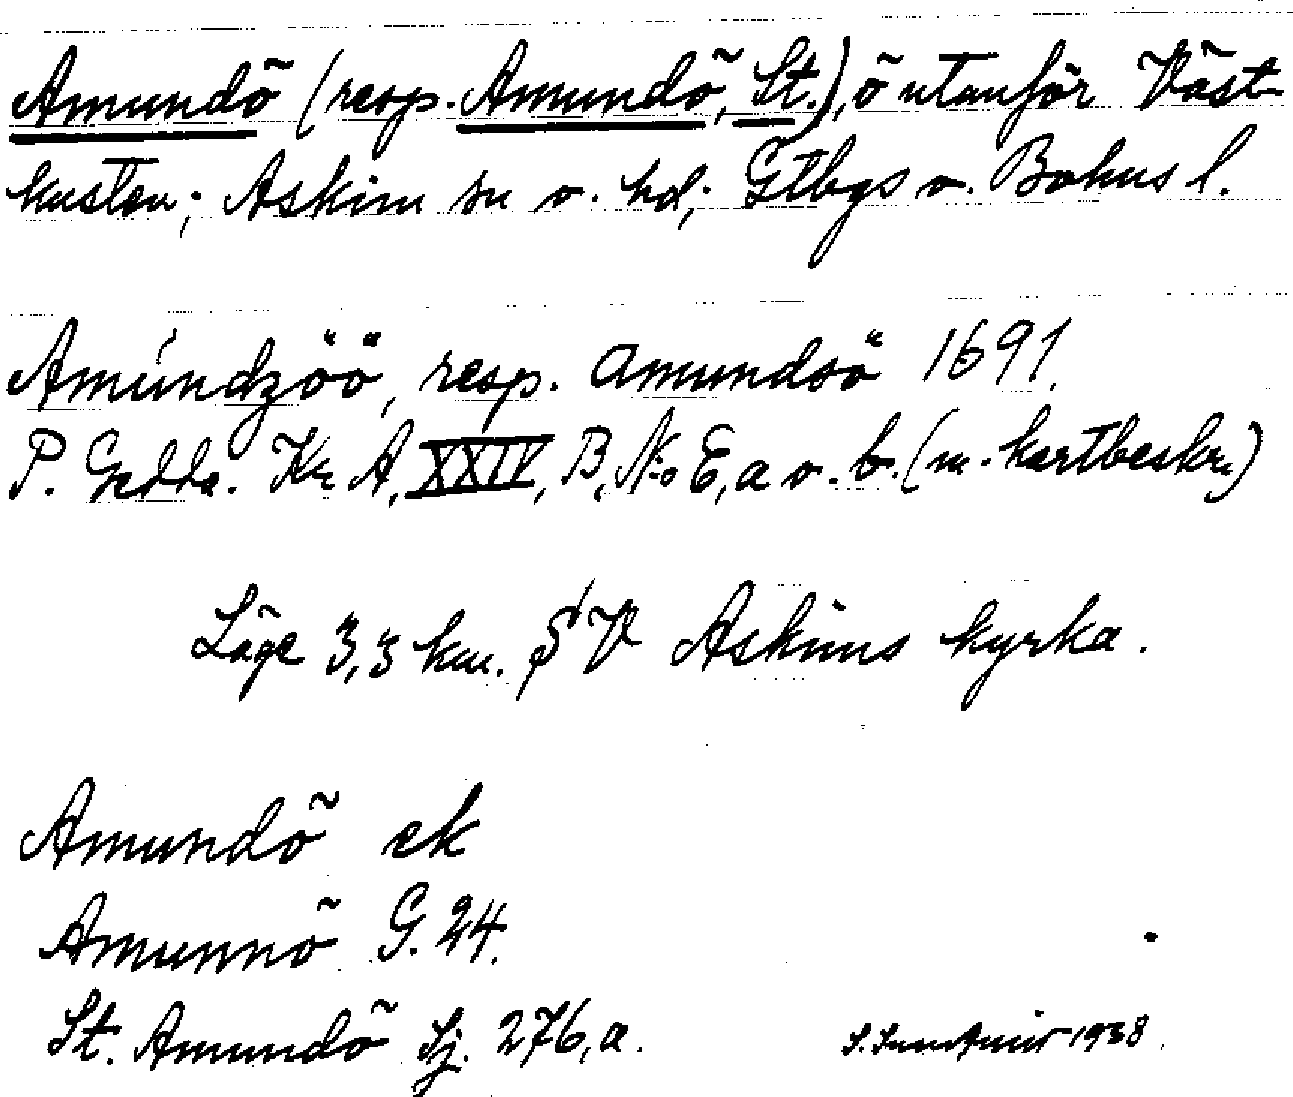 Amundö (resp. Amundö, St.), ö utanför Väst-
kusten; Askim sn o. hd; Gtbgs o. Bohus l.
Amúndzöö, resp. Amundsö 1691.
P. Gedda. Kr A, XXIV, B, No E, a o. b. (m. kartbeskr.)
Läge 3,3 km. SV Askims kyrka.
Amundö ek
Amunnö G. 24.
St. Amundö Sj. 276, a.
1938